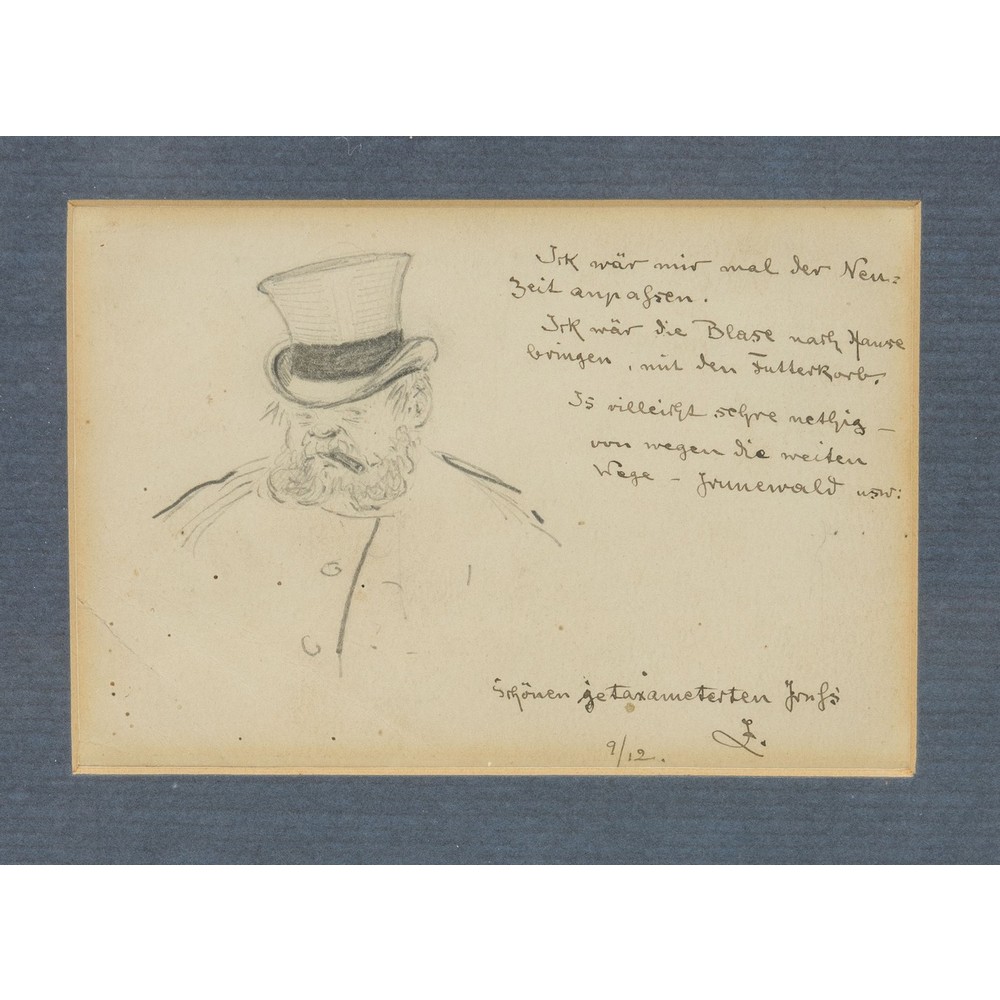 Ick wär mir mal der Neu=
zeit anpassen.
Ick wär die Blase nach Hause
bringen, mit den Futterkorb.
Is villeicht sehre nethig –
von wegen die weiten
Wege – Jrunewald usw:
Schönen getaxameterten Jruß
Z.
9/12.